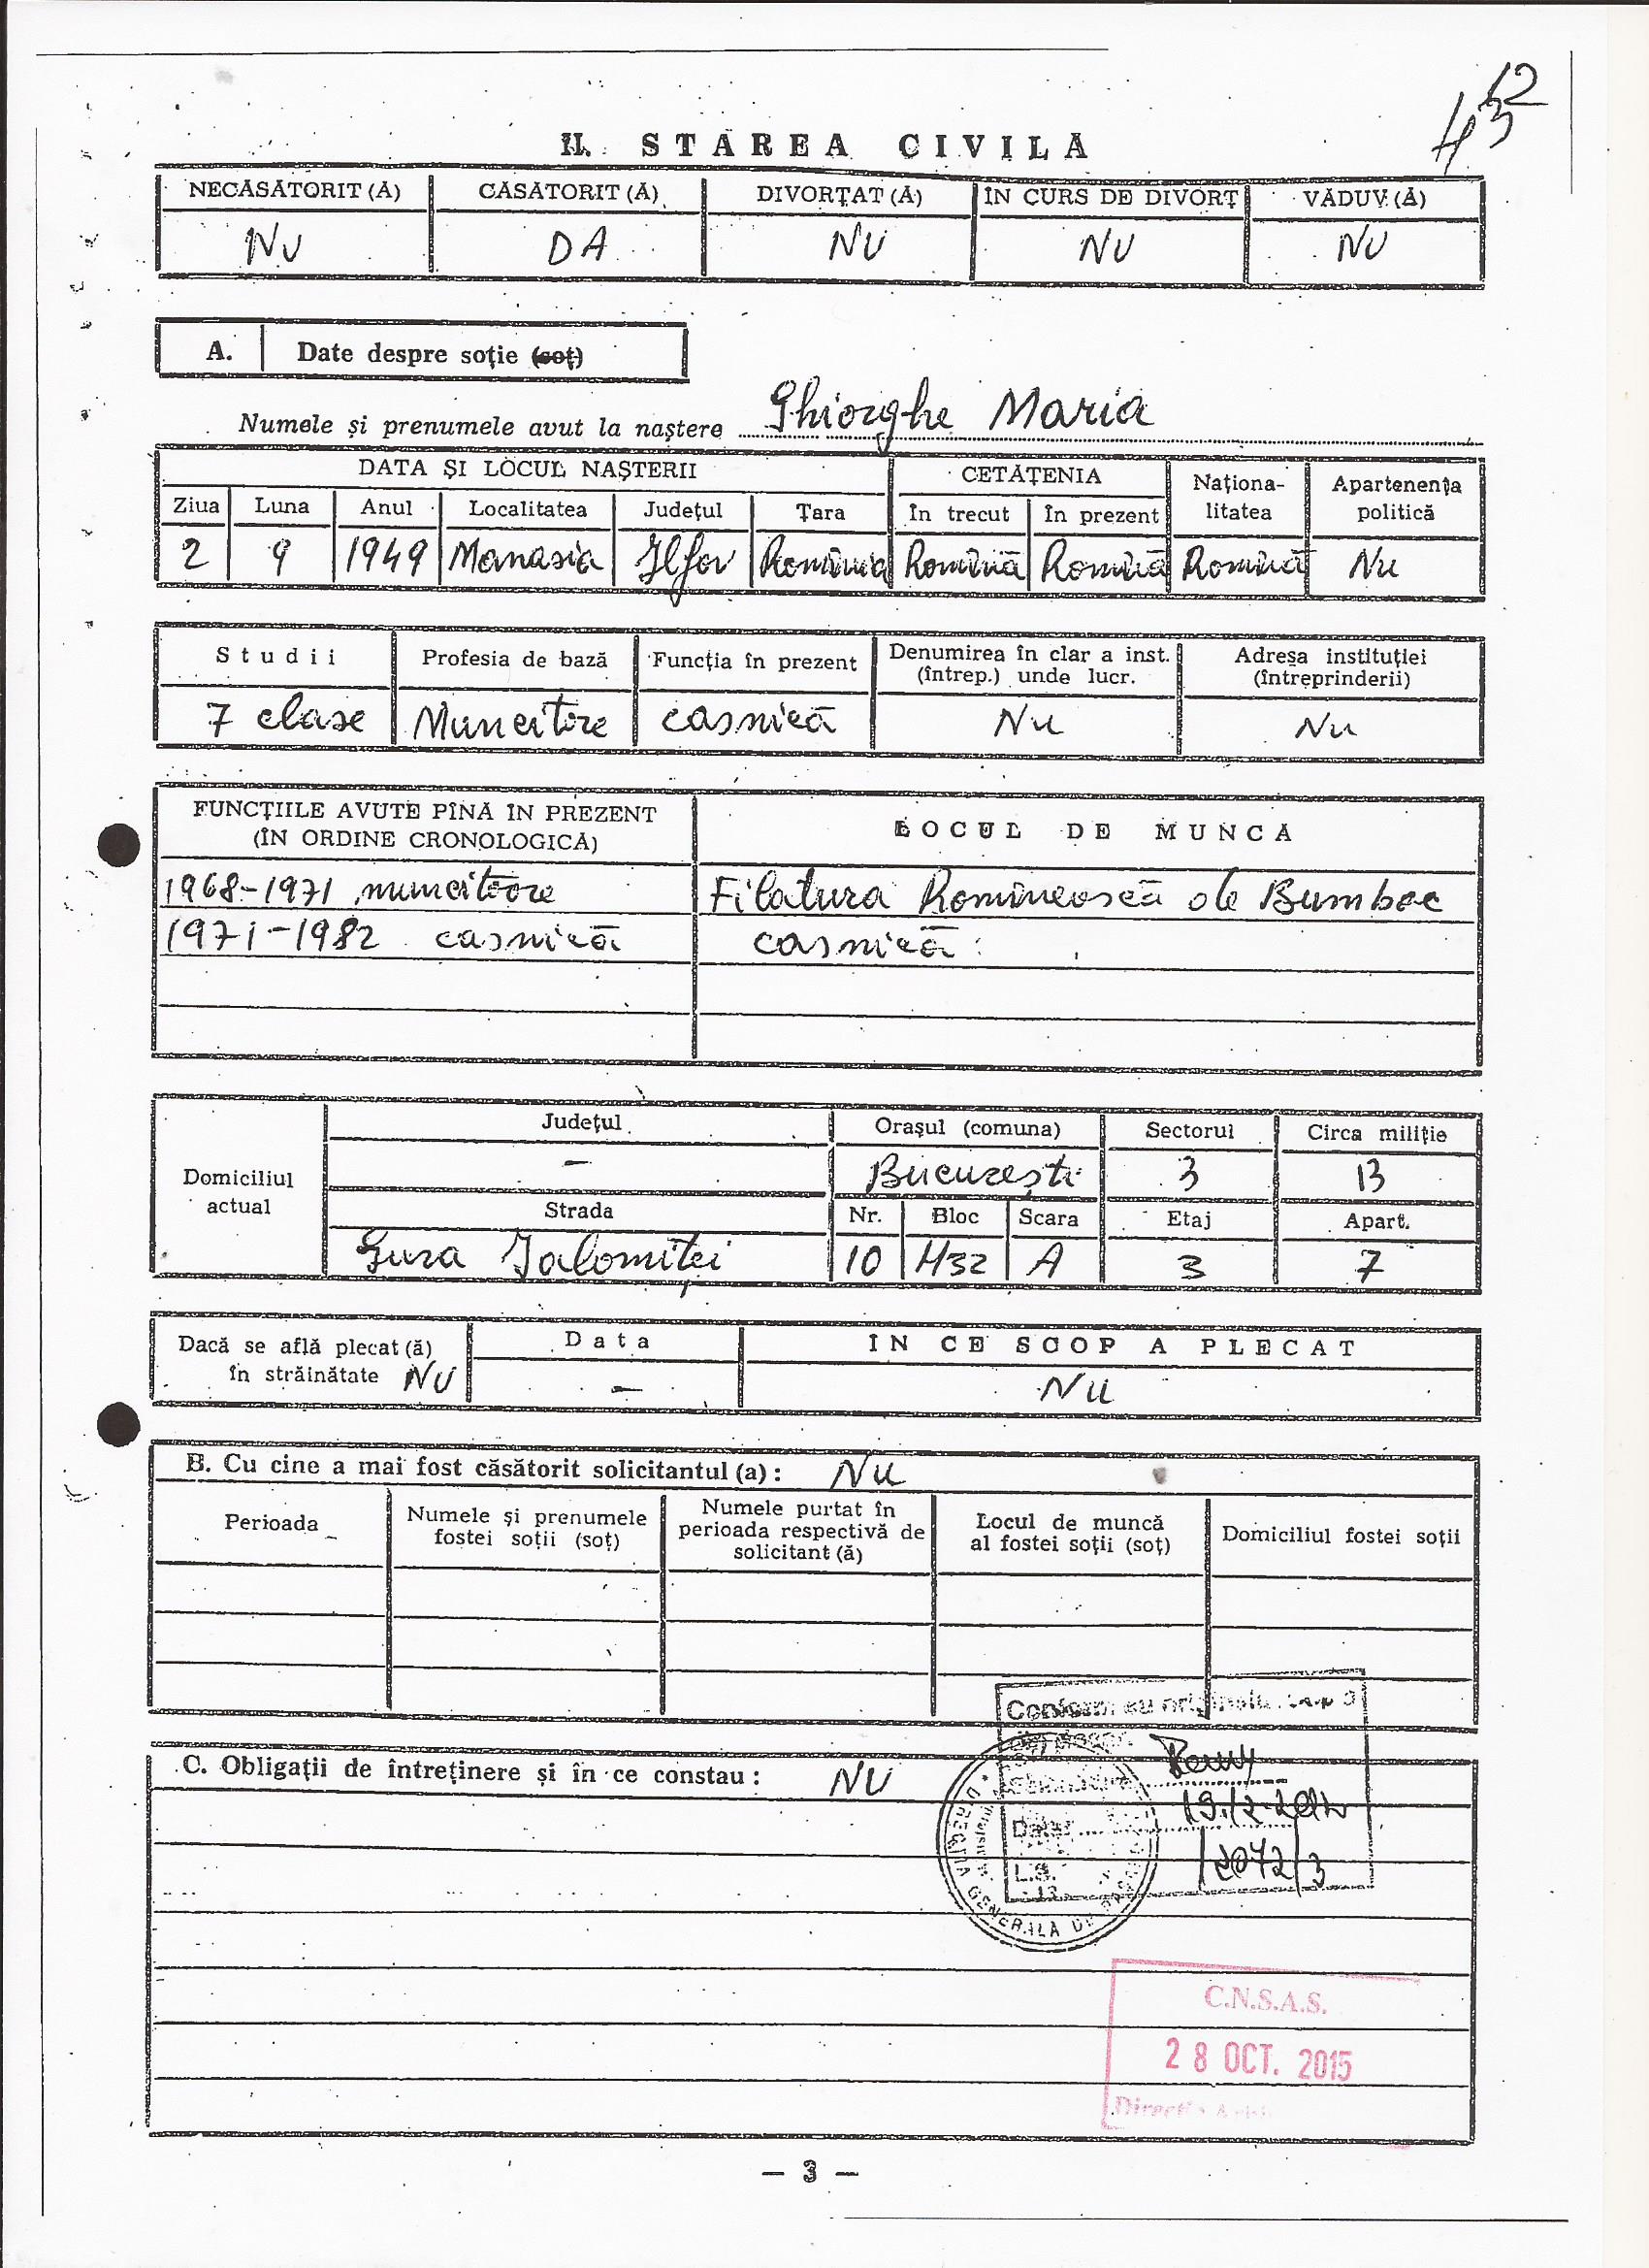 12
II. STAREA CIVILĂ
NECĂSĂTORIT (Ă) CĂSĂTORIT (Ă) DIVORȚAT (Ă) ÎN CURS DE DIVORȚ VĂDUV (Ă)
NU DA NU NU NU
A. Date despre soție (soț)
Numele și prenumele avut la naștere Ghiorghe Maria
DATA ȘI LOCUL NAȘTERII CETĂȚENIA Naționa-litatea Apartenența politică
Ziua Luna Anul Localitatea Județul Țara În trecut În prezent
2 9 1949 Manasia Ilfov România Romînă Romînă Romînă Nu
Studii Profesia de bază Funcția în prezent Denumirea în clar a inst. (întrep.) unde lucr. Adresa instituției (întreprinderii)
7 clase casnică Nu Nu
FUNCȚIILE AVUTE PÎNĂ ÎN PREZENT
(ÎN ORDINE CRONOLOGICĂ) LOCUL DE MUNCĂ
1968-1971 muncitoore Filatura Romînească de Bumbac
1971-1982 casnică casnică
Domiciliul actual
Județul Orașul (comuna) Sectorul Circa miliție
– București 3 13
Strada Nr. Bloc Scara Etaj Apart.
Gura Ialomiței 10 M32 A 3 7
Dacă se află plecat (ă) în străinătate NU Data ÎN CE SCOP A PLECAT
– NU
B. Cu cine a mai fost căsătorit solicitantul (a) : NU
Perioada Numele și prenumele fostei soții (soț) Numele purtat în perioada respectivă de solicitant (ă) Locul de muncă al fostei soții (soț) Domiciliul fostei soții
Conform cu
C. Obligații de întreținere și în ce constau : NU
Data
L.S.
DIRECȚIA GENERALĂ DE
C.N.S.A.S.
28 OCT. 2015
— 3 —